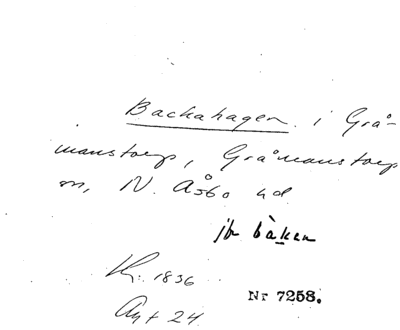 Backahagen i Grå-
manstorp, Gråmanstorp
sn, N. Åsbo hd
jfr bàken
1836
Nr 7258.
24